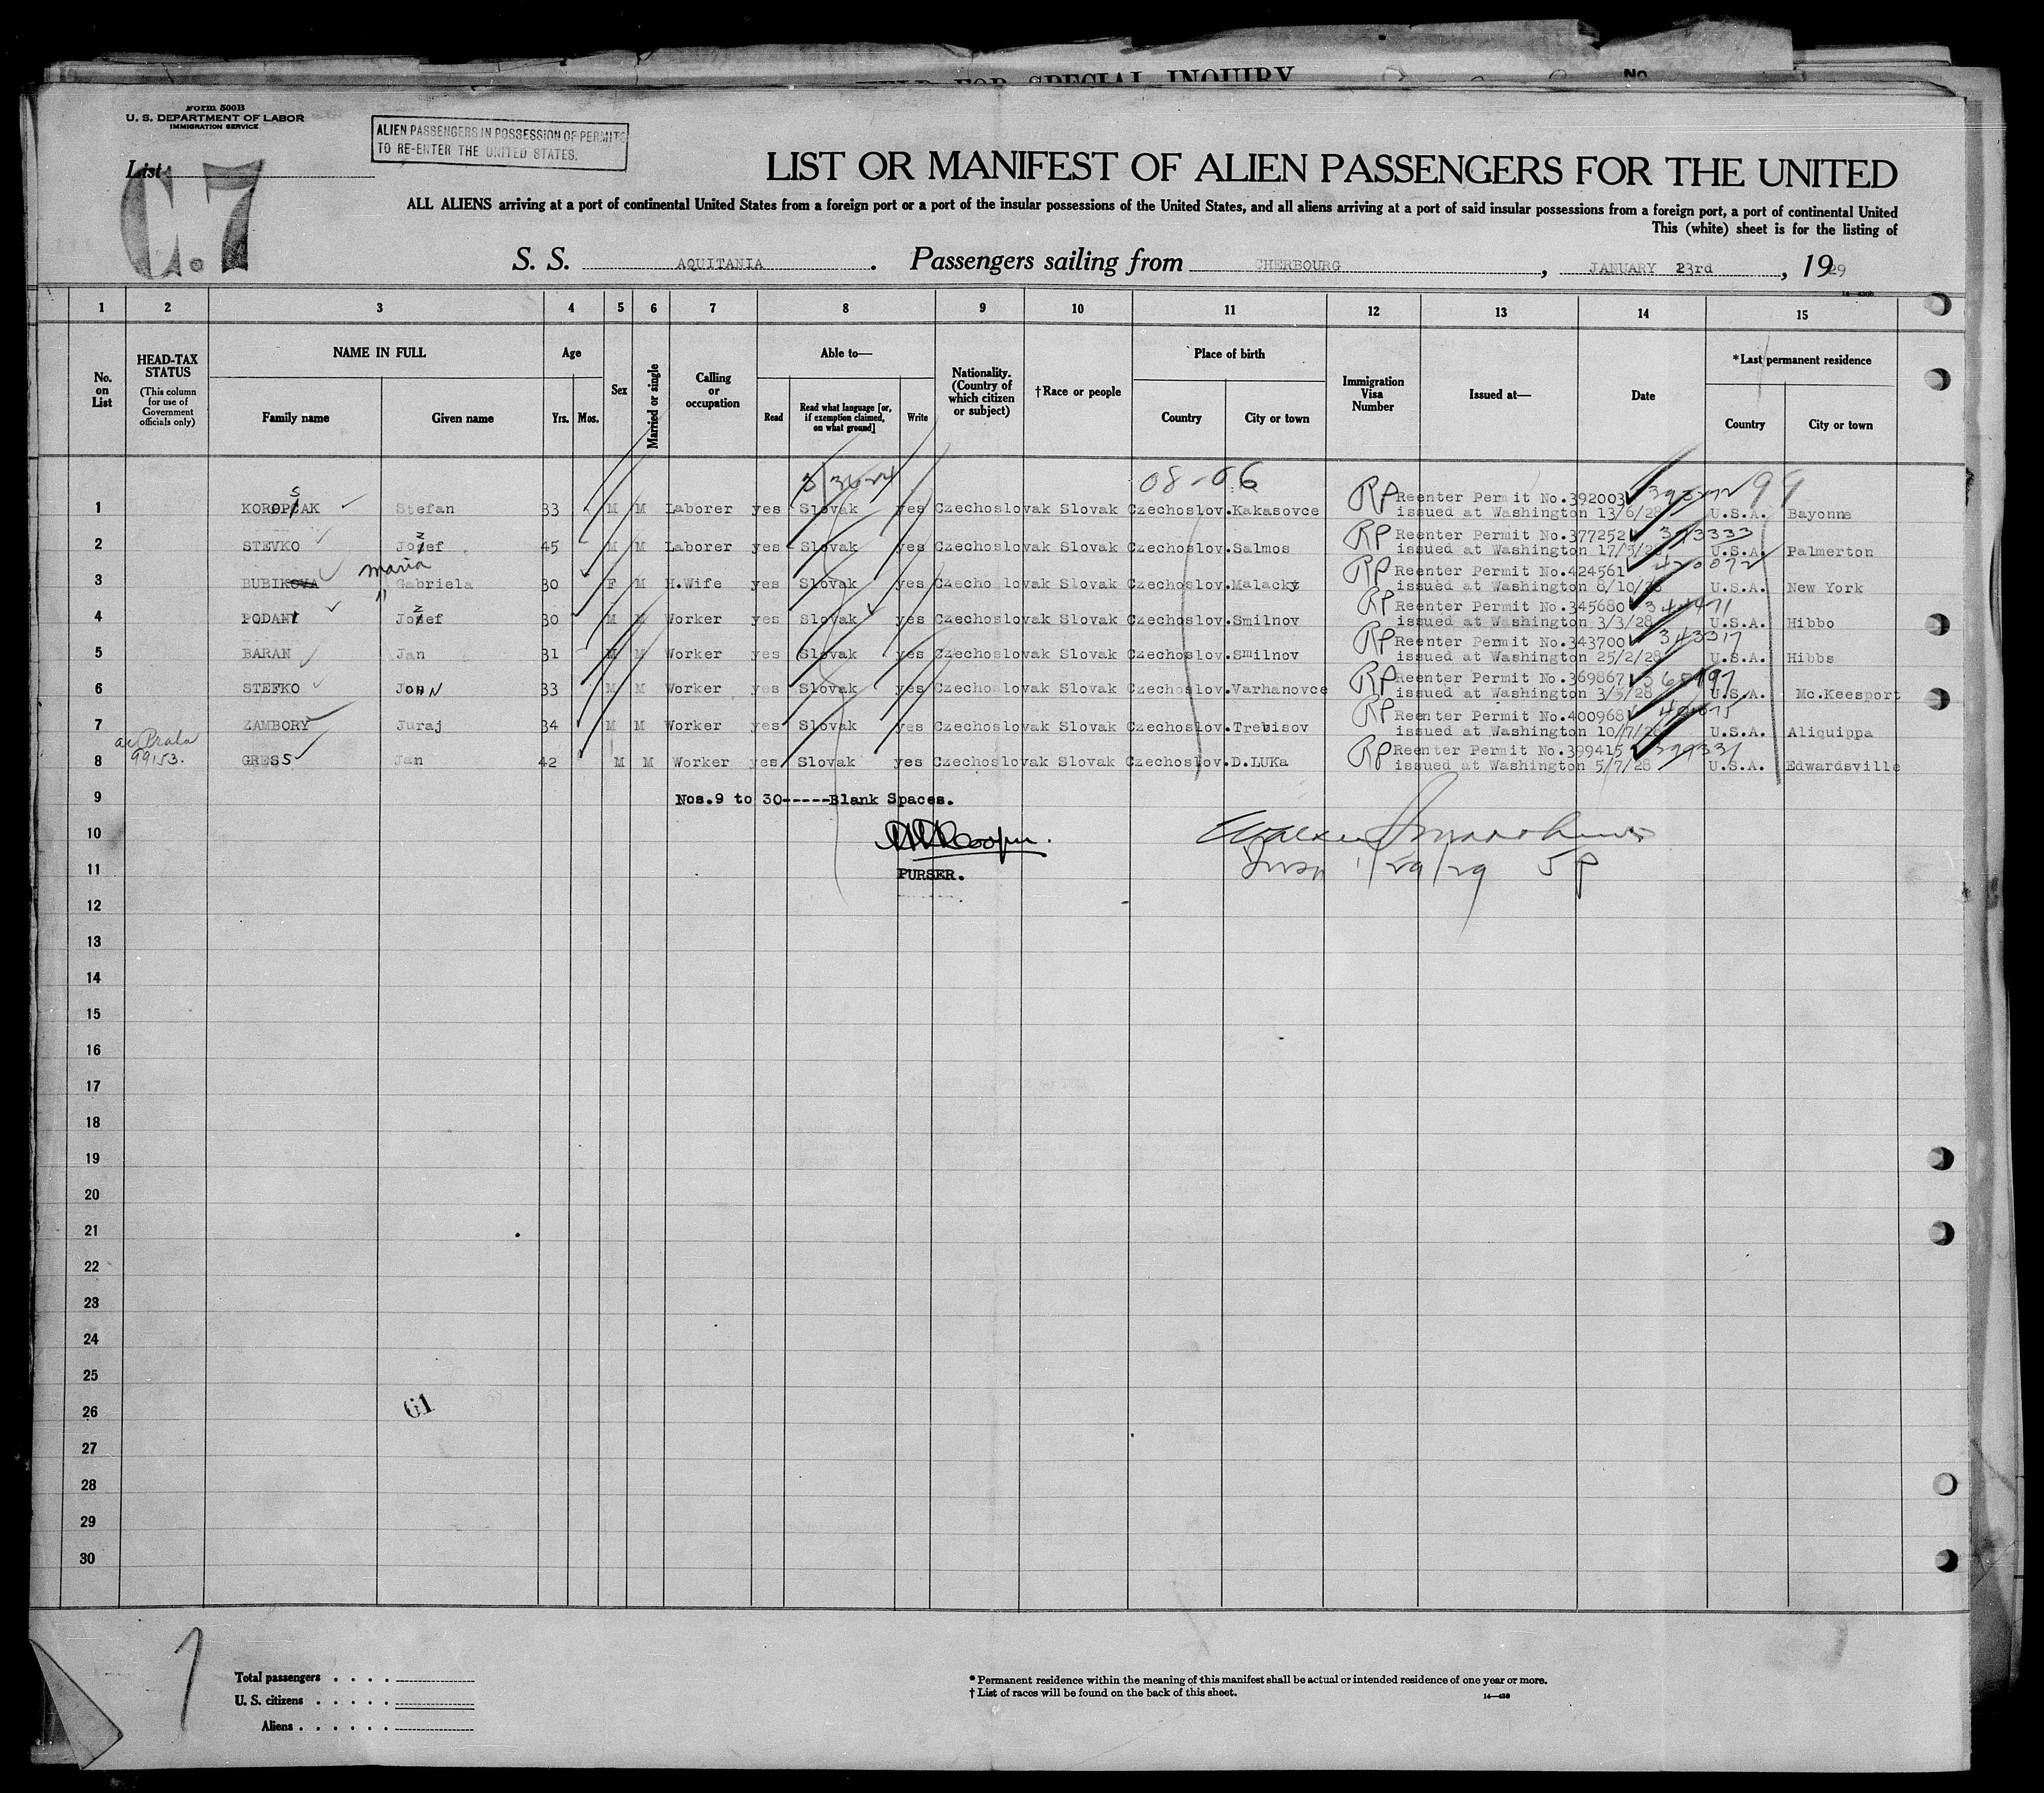 HELD FOR SPECIAL INQUIRY
No.
Form 500B
U. S. DEPARTMENT OF LABOR
IMMIGRATION SERVICE
ALIEN PASSENGERS IN POSSESSION OF PERMITS
TO RE-ENTER THE UNITED STATES.
List
C.7
LIST OR MANIFEST OF ALIEN PASSENGERS FOR THE UNITED
ALL ALIENS arriving at a port of continental United States from a foreign port or a port of the insular possessions of the United States, and all aliens arriving at a port of said insular possessions from a foreign port, a port of continental United
This (white) sheet is for the listing of
S. S. AQUITANIA. Passengers sailing from CHERBOURG, JANUARY 23rd, 1929
1 2 3 4 5 6 7 8 9 10 11 12 13 14 15
No. on List
HEAD-TAX STATUS
(This column for use of Government officials only)
NAME IN FULL
Family name Given name
Age
Yrs. Mos.
Sex
Married or single
Calling or occupation
Able to—
Read
Read what language [or, if exemption claimed, on what ground]
Write
Nationality. (Country of which citizen or subject)
†Race or people
Place of birth
Country City or town
Immigration Visa Number
Issued at—
Date
*Last permanent residence
Country City or town
08-06
99
1 KOROPSAK Stefan 33 M M Laborer yes Slovak yes Czechoslovak Slovak Czechoslov. Kakasovce RP Reenter Permit No.392003 issued at Washington 13/6/28 U.S.A. Bayonne
2 STEVKO Jozef 45 M M Laborer yes Slovak yes Czechoslovak Slovak Czechoslov. Salmos RP Reenter Permit No.377252 issued at Washington 17/5/28 U.S.A. Palmerton
3 BUBIKOVA Maria Gabriela 30 F M H.Wife yes Slovak yes Czechoslovak Slovak Czechoslov. Malacky RP Reenter Permit No.424561 420072 issued at Washington 8/10/28 U.S.A. New York
4 PODANY Jozef 30 M M Worker yes Slovak yes Czechoslovak Slovak Czechoslov. Smilnov RP Reenter Permit No.345680 344471 issued at Washington 3/3/28 U.S.A. Hibbo
5 BARAN Jan 31 M M Worker yes Slovak yes Czechoslovak Slovak Czechoslov. Smilnov RP Reenter Permit No.343700 343317 issued at Washington 25/2/28 U.S.A. Hibbs
6 STEFKO John 33 M M Worker yes Slovak yes Czechoslovak Slovak Czechoslov. Varhanovce RP Reenter Permit No.369867 issued at Washington 3/5/28 U.S.A. Mc.Keesport
7 ZAMBORY Juraj 34 M M Worker yes Slovak yes Czechoslovak Slovak Czechoslov. Trebisov RP Reenter Permit No.400968 issued at Washington 10/7/28 U.S.A. Aliquippa
99153.
8 GRESS Jan 42 M M Worker yes Slovak yes Czechoslovak Slovak Czechoslov. D.LUKa RP Reenter Permit No.399415 issued at Washington 5/7/28 U.S.A. Edwardsville
9 Nos.9 to 30-----Blank Spaces.
10
11 PURSER. 1/29/29 5P
12
13
14
15
16
17
18
19
20
21
22
23
24
25
26 61
27
28
29
30
Total passengers
U. S. citizens
Aliens
* Permanent residence within the meaning of this manifest shall be actual or intended residence of one year or more.
† List of races will be found on the back of this sheet.
14—430